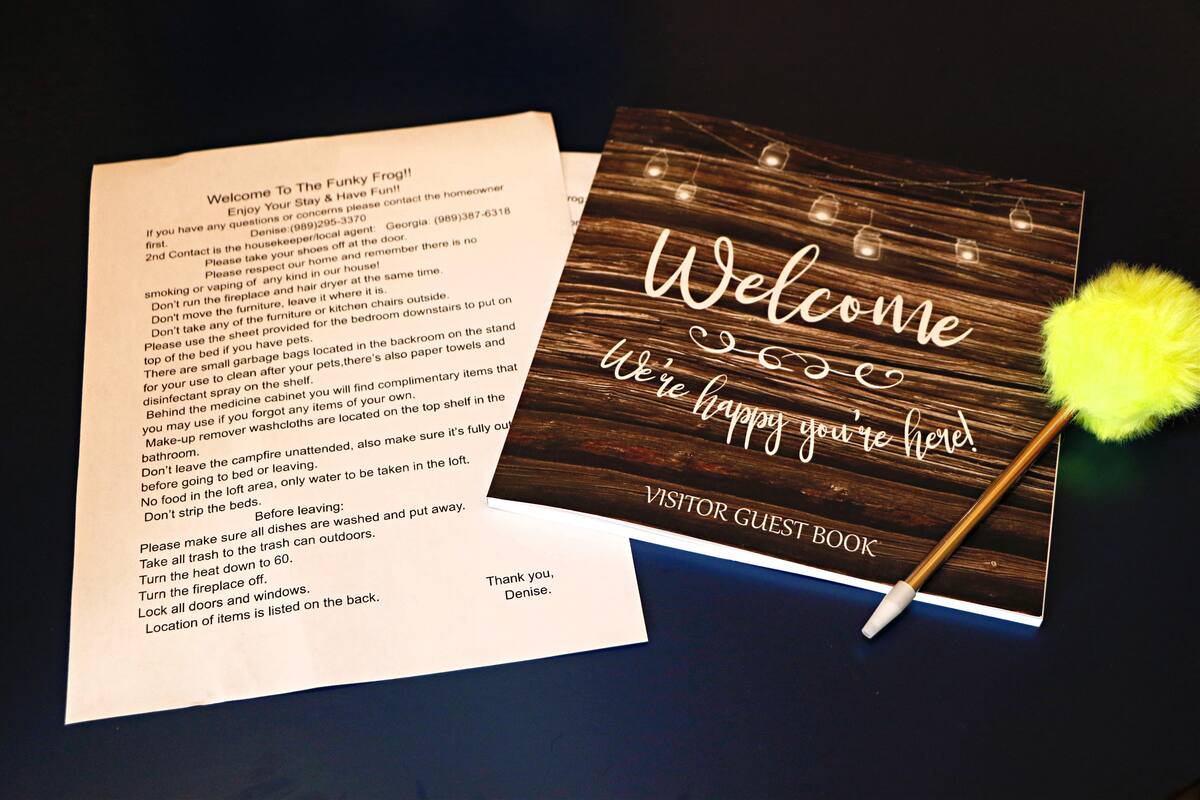 Welcome To The Funky Frog!!
Enjoy Your Stay & Have Fun!!
If you have any questions or concerns please contact the homeowner
first. Denise:(989)295-3370
2nd Contact is the housekeeper/local agent: Georgia: (989)387-6318
Please take your shoes off at the door.
Please respect our home and remember there is no
smoking or vaping of any kind in our house!
Don't run the fireplace and hair dryer at the same time.
Don't move the furniture, leave it where it is.
Don't take any of the furniture or kitchen chairs outside.
Please use the sheet provided for the bedroom downstairs to put on
top of the bed if you have pets.
There are small garbage bags located in the backroom on the stand
for your use to clean after your pets,there's also paper towels and
disinfectant spray on the shelf.
Behind the medicine cabinet you will find complimentary items that
you may use if you forgot any items of your own.
Make-up remover washcloths are located on the top shelf in the
bathroom.
Don't leave the campfire unattended, also make sure it's fully out
before going to bed or leaving.
No food in the loft area, only water to be taken in the loft.
Don't strip the beds.
Before leaving:
Please make sure all dishes are washed and put away.
Take all trash to the trash can outdoors.
Turn the heat down to 60.
Turn the fireplace off.
Lock all doors and windows.
Location of items is listed on the back.
Thank you,
Denise.
rog
Welcome
We're happy you're here!
VISITOR GUEST BOOK